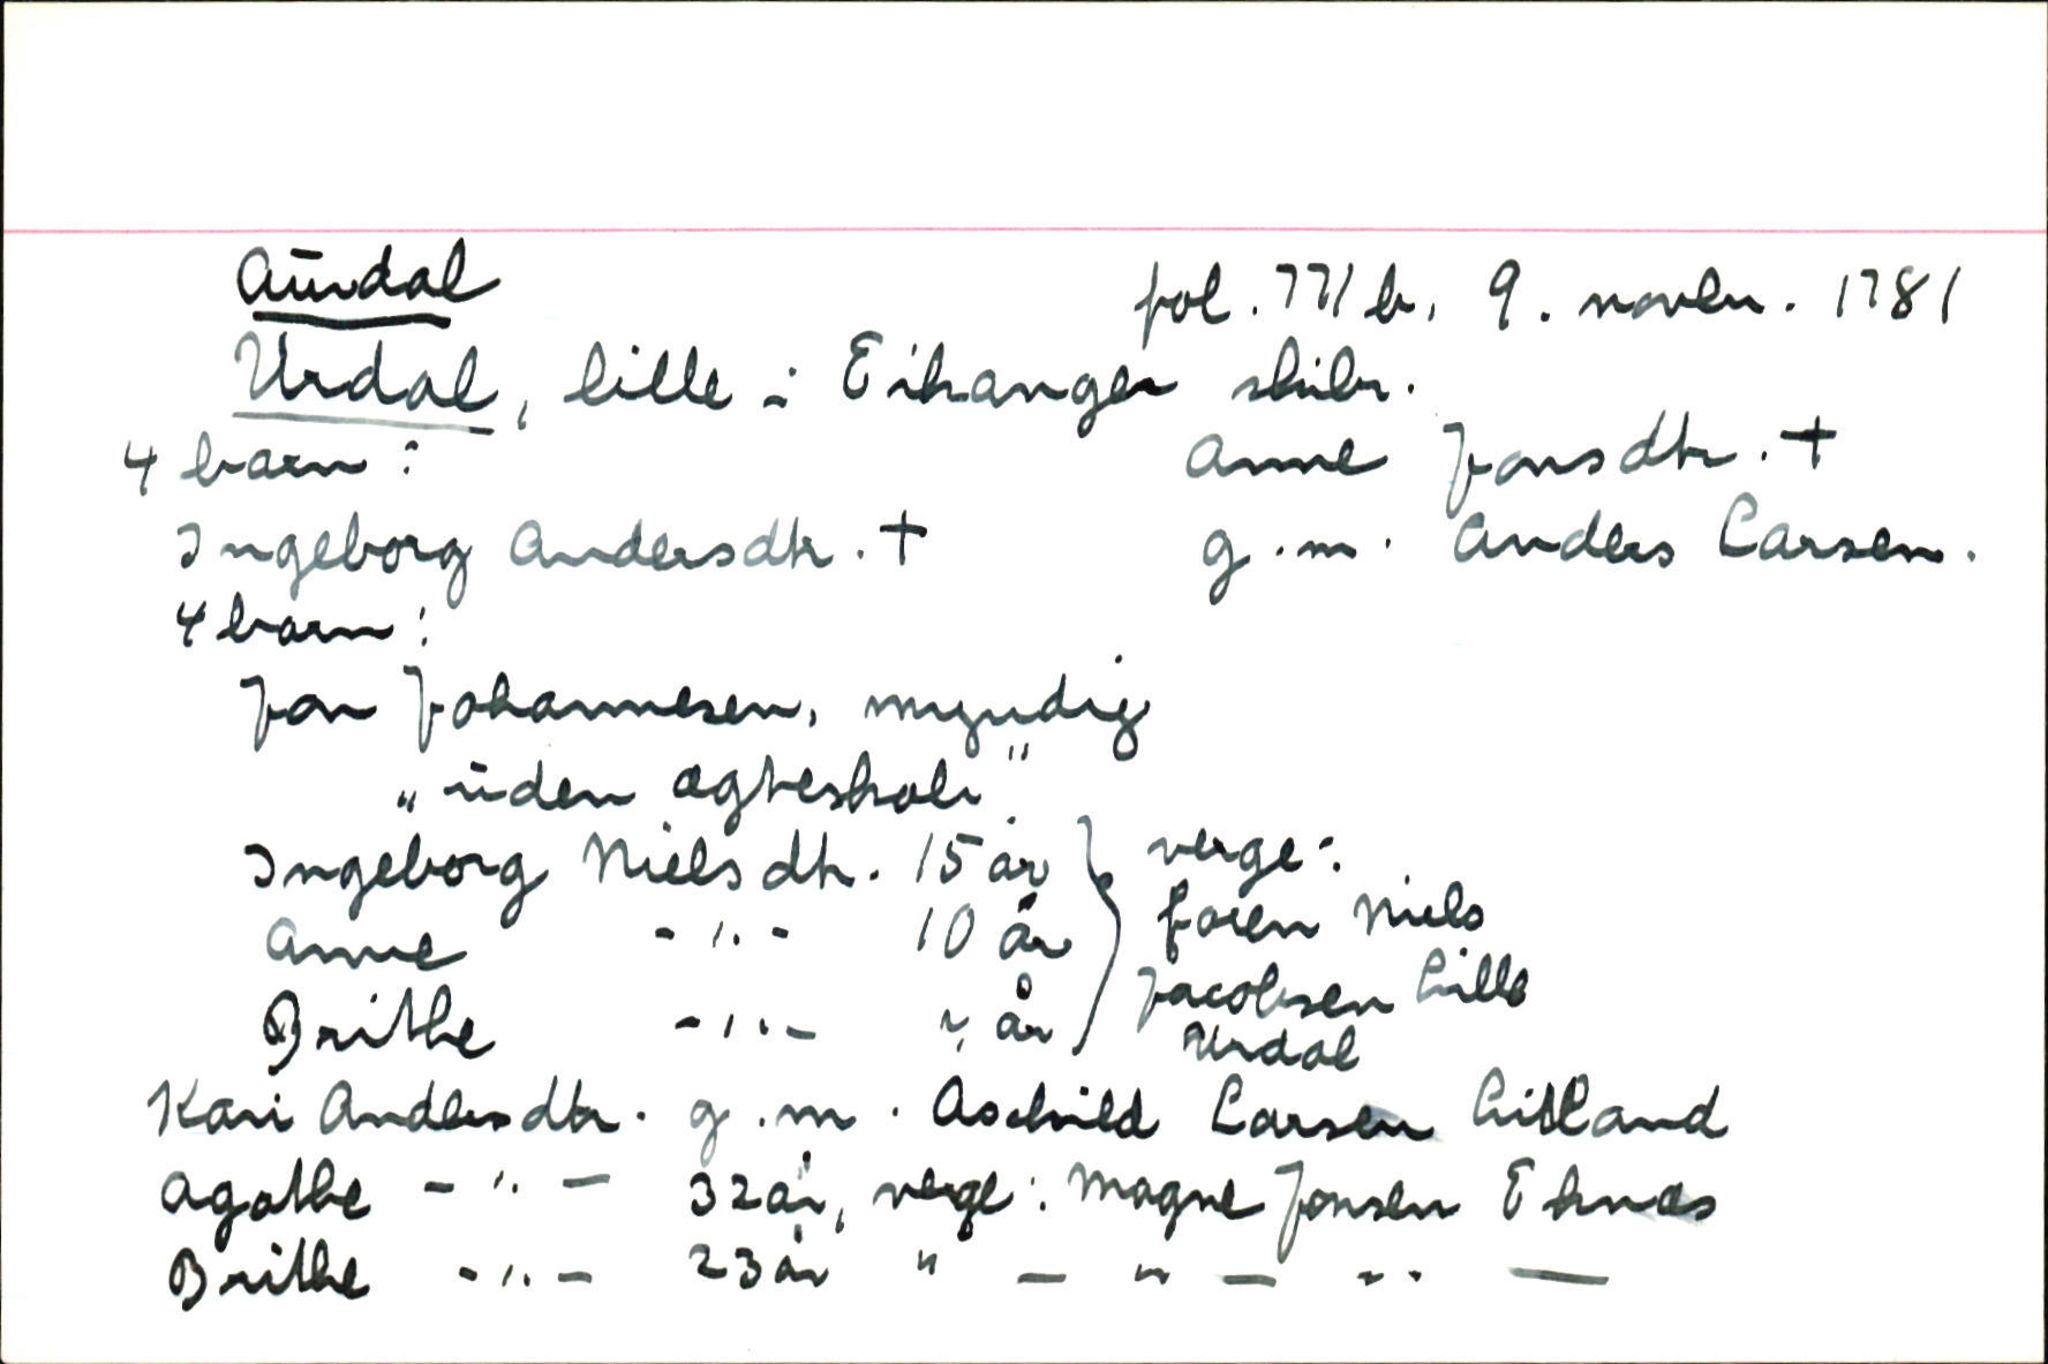 Aūrdal
fol. 771 b, 9. novbr. 1781
Urdal, lille i Eikanger skibr.
4 barn:
Anne Jonsdtr. +
Ingeborg Andersdtr. +
g.m. Anders Larsen.
4 barn:
Jon Johannesen, myndig
„ūden ægteskab"
Ingeborg Nielsdtr. 15 år } verge:
Anne -"- 10 år faren Niels
Brithe -"- år Jacobsen Lille
Urdal
Kari Andersdtr. g.m. Aschild Larsen Litland
Agathe -"- 32 år, verge: Magne Jonsen Eknæs
Brithe -"- 23 år " - " - " -